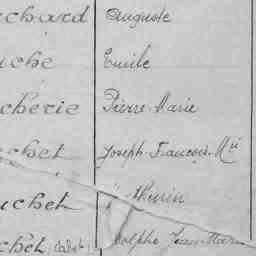 chard Auguste
uche Emile
cherie Pierre Marie
chet Joseph-François-Mie
uchet
chet Jean Marie